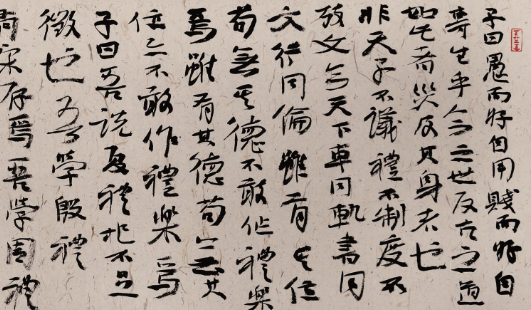 子曰愚而好自用賤而好自
專生乎今之世反古之道
如此者災及其身者也
非天子不議禮不制度不
考文今天下車同軌書同
文行同倫雖有其位
苟無其德不敢作禮樂
焉雖有其德苟無其
位亦不敢作禮樂焉
子曰吾說夏禮杞不足
徵也吾學殷禮
有宋存焉吾學周禮